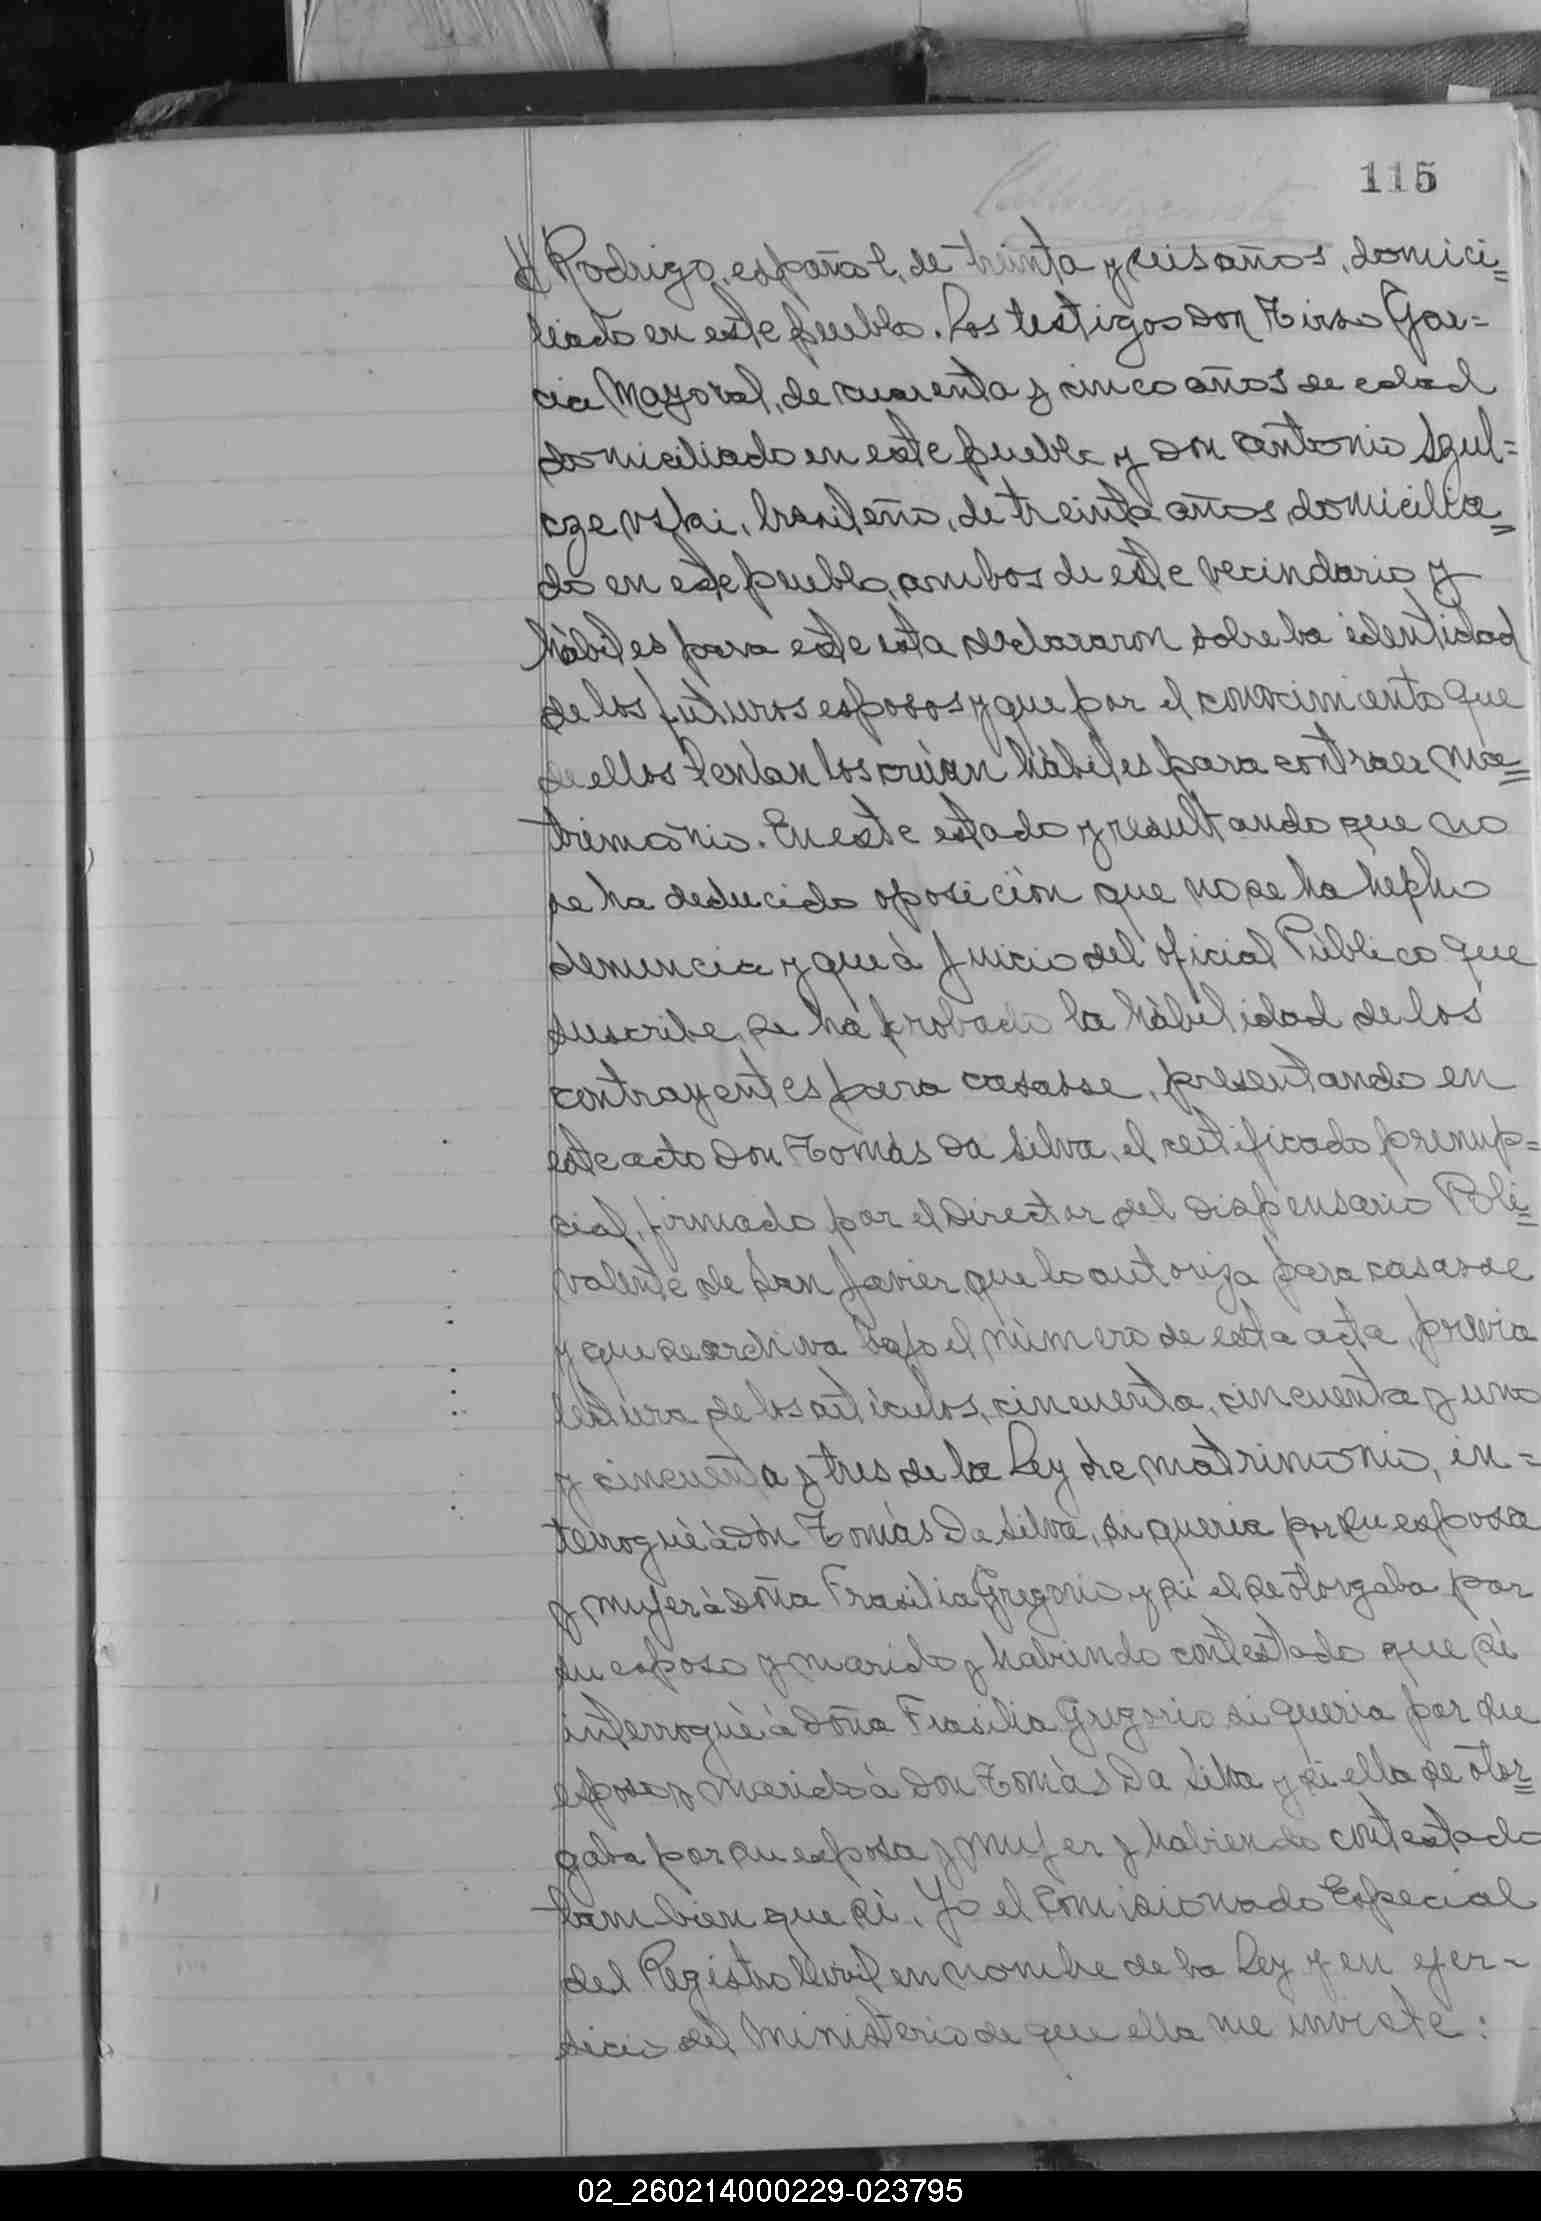 115
Rodrigo, español, de treinta y seis años, domici=
liado en este pueblo. Los testigos Don Tirso Gar=
cia Mayoral, de cuarenta y cinco años de edad
domiciliado en este pueblo y Don Antonio Szul=
czevski, brasileño, de treinta años, domicilia=
do en este pueblo, ambos de este vecindario y
hábiles para este acta declararon sobre la identidad
de los futuros esposos y que por el conocimiento que
de ellos tenian los creian hábiles para contraer ma=
trimonio. En este estado y resultando que no
se ha deducido oposición que no se ha hecho
denuncia y que á juicio del oficial Público que
suscribe, se ha probado la hábilidad de los
contrayentes para casarse, presentando en
este acto Don Tomás Da Silva, el certificado prenup=
cial, firmado por el Director del Dispensario Poli=
valente de San Javier que lo autoriza para casarse
y que se archiva bajo el número de esta acta, previa
lectura de los artículos, cincuenta, cincuenta y uno
y cincuenta y tres de la Ley de matrimonio, in=
terrogué á Don Tomás Da Silva, si queria por su esposa
y mujer á Doña Frasilia Gregorio y si el se otorgaba por
su esposo y marido y habiendo contestado que si
interrogué á Doña Frasilia Gregorio si queria por su
esposo y marido á Don Tomás Da Silva y si ella se otor=
gaba por su esposa y mujer y habiendo contestado
tambien que si, Yo el Comisionado Especial
del Registro Civil en nombre de la Ley y en ejer=
sicio del Ministerio de que ella me inviste:
02_260214000229-023795